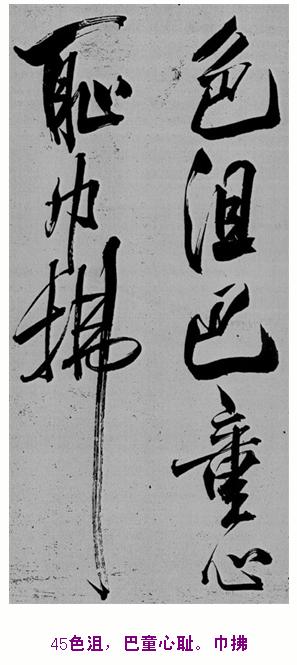 色沮巴童心
恥巾拂
45色沮，巴童心耻。巾拂